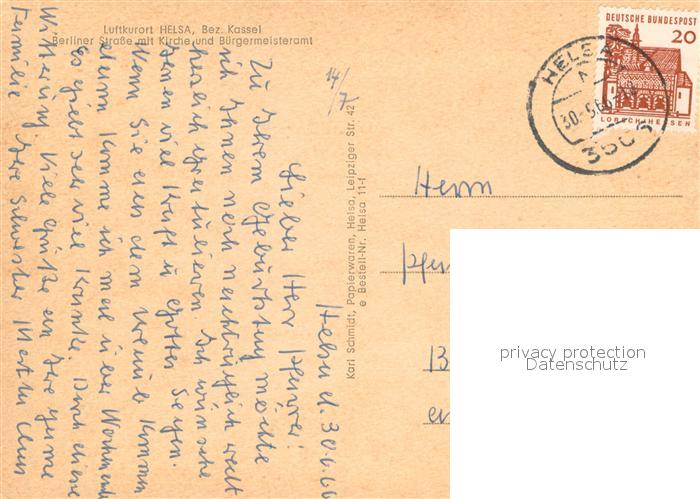 Luftkurort HELSA, Bez. Kassel
Berliner Straße mit Kirche und Bürgermeisteramt
DEUTSCHE BUNDESPOST
20
LORSCH/HESSEN
HELSA
30.-6.66
3501
14/7
Karl Schmidt, Papierwaren, Helsa, Leipziger Str. 42
e Bestell-Nr. Helsa 11-f
Helsa d. 30.6.66
Lieber Herr Pfarrer!
Zu Ihrem Geburtstag möchte
ich Ihnen noch nachträglich recht
herzlich gratulieren. Ich wünsche
Ihnen viel Kraft u. Gottes Segen.
Wenn Sie aus dem kommen
dann komme ich mal über Wochenende
Es giebt sehr viel Kranke. Durch diese
Witterung. Viele Grüße an Ihre ganze
Familie Ihre Schwester
Herrn
privacy protection
Datenschutz